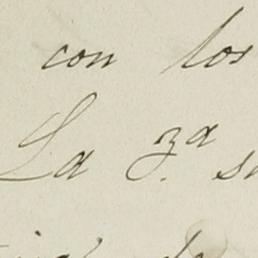 con los
La 3ª s